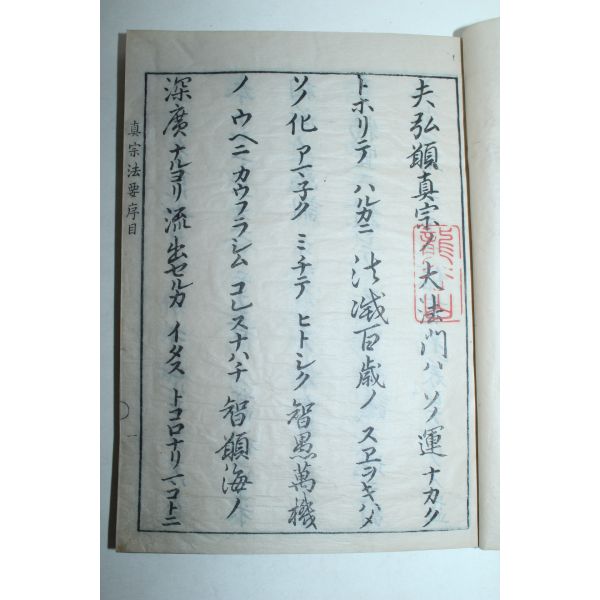 夫弘願真宗ノ大法門ハソノ運ナカク
トホリテハルカニ法滅百歳ノスヱヲキハメ
ソノ化アマネクミチテヒトシク智愚萬機
ノウヘニカウフラシムコレスナハチ智願海ノ
深廣ナルヨリ流出セルカイタストコロナリマコトニ
真宗法要序目
一